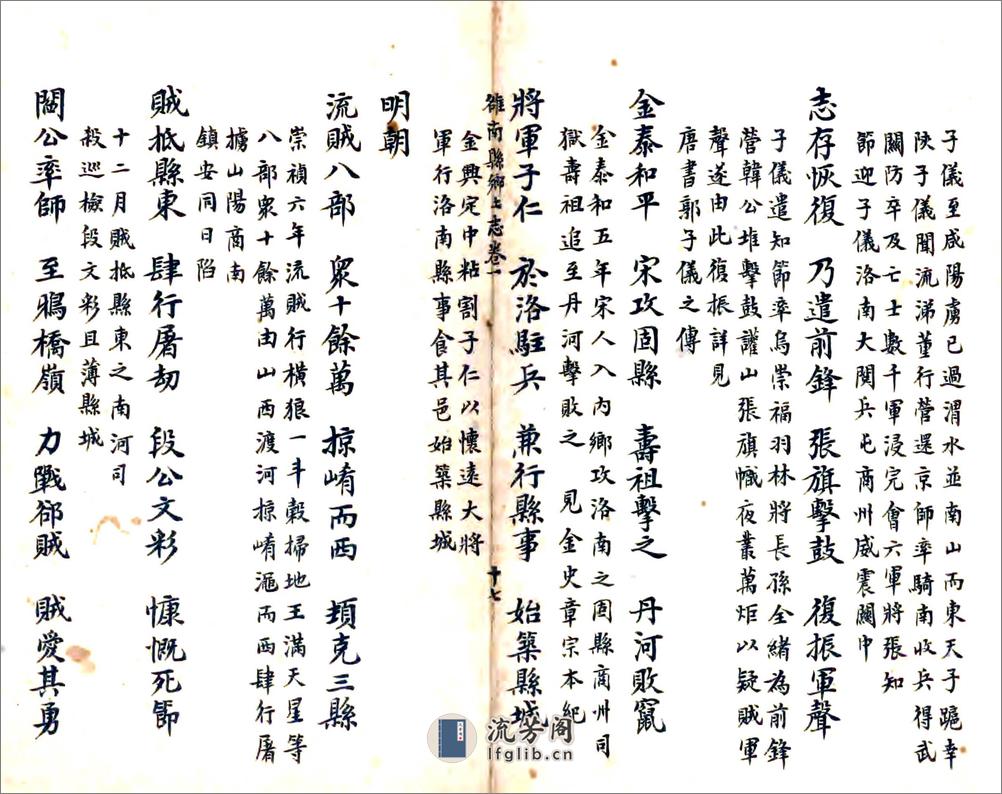 子儀至咸陽虜已過渭水並南山而東天子跪幸
陝子儀聞流涕董行營還京師率騎南收兵得武
關防卒及亡士數千軍浸完會六軍將張知
節迎子儀洛南大閱兵屯商州威震關中
志存恢復 乃遣前鋒 張旗擊鼓 復振軍聲
子儀遣知節率烏崇福羽林將長孫全緒為前鋒
營韓公堆擊鼓讙山張旗幟夜叢萬炬以疑賊軍
聲遂由此復振詳見
唐書郭子儀之傳
金泰和平 宋攻固縣 壽祖擊之 丹河敗竄
金泰和五年宋人入內鄉攻洛南之固縣商州司
獄壽祖追至丹河擊敗之 見金史章宗本紀
將軍子仁 於洛駐兵 兼行縣事 始築縣城
金興定中粘割子仁以懷遠大將
軍行洛南縣事食其邑始築縣城
雒南縣鄉土志卷一 十七
明朝
流賊八部 眾十餘萬 掠崤而西 頃克三縣
崇禎六年流賊行橫狼一斗穀掃地王滿天星等
八部眾十餘萬由山西渡河掠崤澠而西肆行屠
擄山陽商南
鎮安同日陷
賊抵縣東 肆行屠劫 段公文彩 慷慨死節
十二月賊抵縣東之南河司
殺巡檢段文彩且薄縣城
閤公率師 至鴉橋嶺 力戰郤賊 賊愛其勇
流芳阁
lfglib.cn